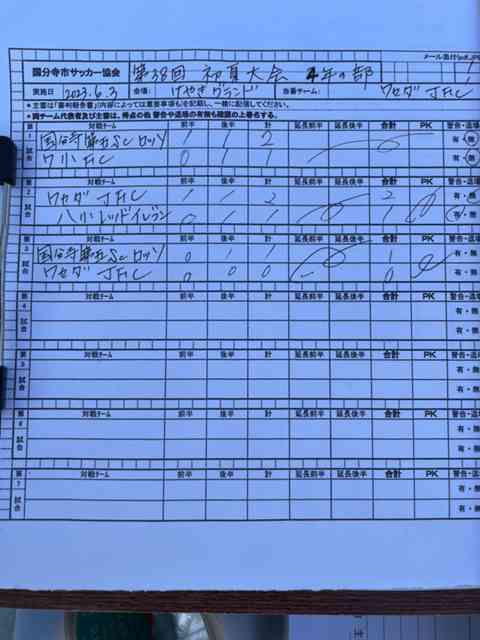 メール送付
国分寺市サッカー協会 第38回 初夏大会 4年の部
実施日 2023.6.3 会場: けやきグランド 当番チーム: ワセダ JFC
*主審は「審判報告書」内容によっては重要事項も記載し、一緒に配信してください。
*両チーム代表者及び主審は、得点の他 警告や退場の有無も確認の上署名する。
第1試合 対戦チーム 前半 後半 計 延長前半 延長後半 合計 PK 警告・退場
国分寺第五SCロッソ 1 1 2 有・無
ワ小FC 0 1 1 有・無
第2試合 対戦チーム 前半 後半 計 延長前半 延長後半 合計 PK 警告・退場
ワセダ JFC 1 1 2 2 有・無
八小レッドイレブン 0 1 1 1 有・無
第3試合 対戦チーム 前半 後半 計 延長前半 延長後半 合計 PK 警告・退場
国分寺第五SCロッソ 0 1 1 1 有・無
ワセダ JFC 0 0 0 0 有・無
第4試合 対戦チーム 前半 後半 計 延長前半 延長後半 合計 PK 警告・退場
有・無
有・無
第5試合 対戦チーム 前半 後半 計 延長前半 延長後半 合計 PK 警告・退場
有・無
有・無
第6試合 対戦チーム 前半 後半 計 延長前半 延長後半 合計 PK 警告・退場
有・無
有・無
第7試合 対戦チーム 前半 後半 計 延長前半 延長後半 合計 PK 警告・退場
有・無
有・無